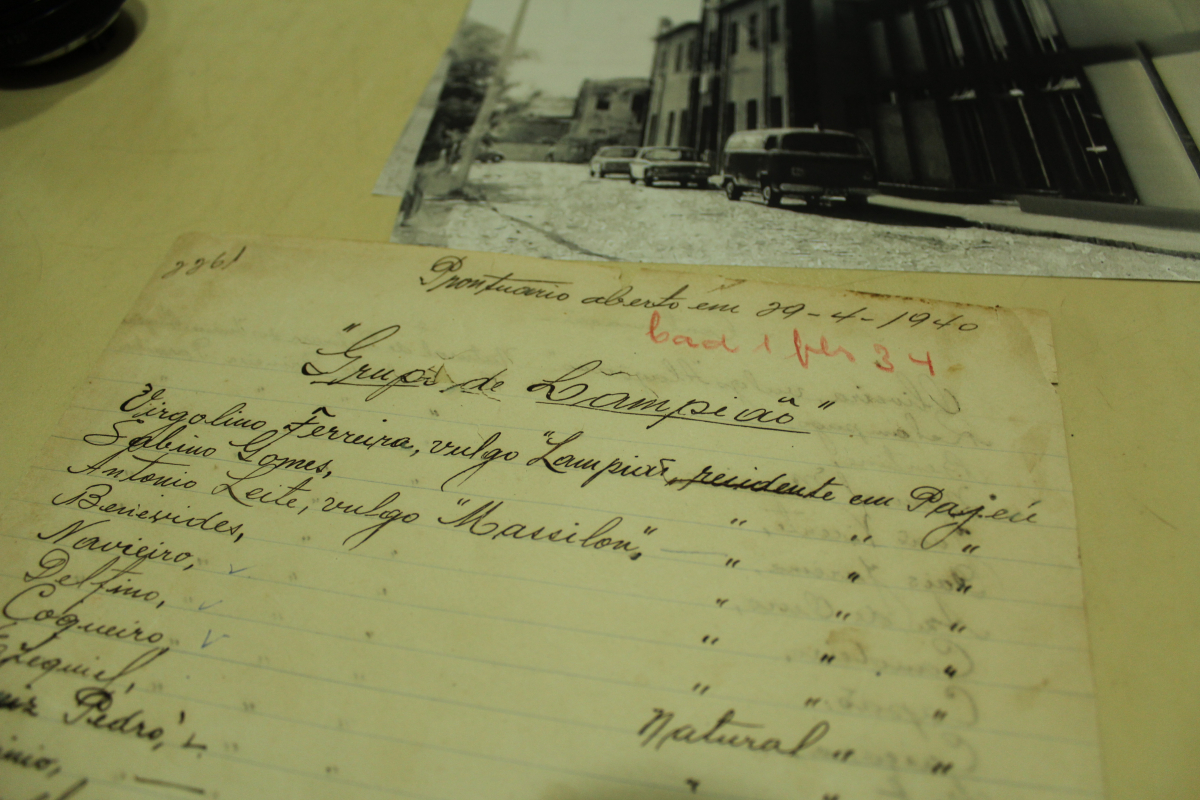 2261
Prontuário aberto em 29-4-1940
Cad 1 fls 34
"Grupo de Lampião"
Virgolino Ferreira, vulgo "Lampião, residente em Pajeú
Sabino Gomes, " " "
Antonio Leite, vulgo "Massilon", " " "
Benevides, " " "
Navieiro, " " "
Delfino, " " "
Coqueiro
Ezequiel, Natural " "
Pedro,